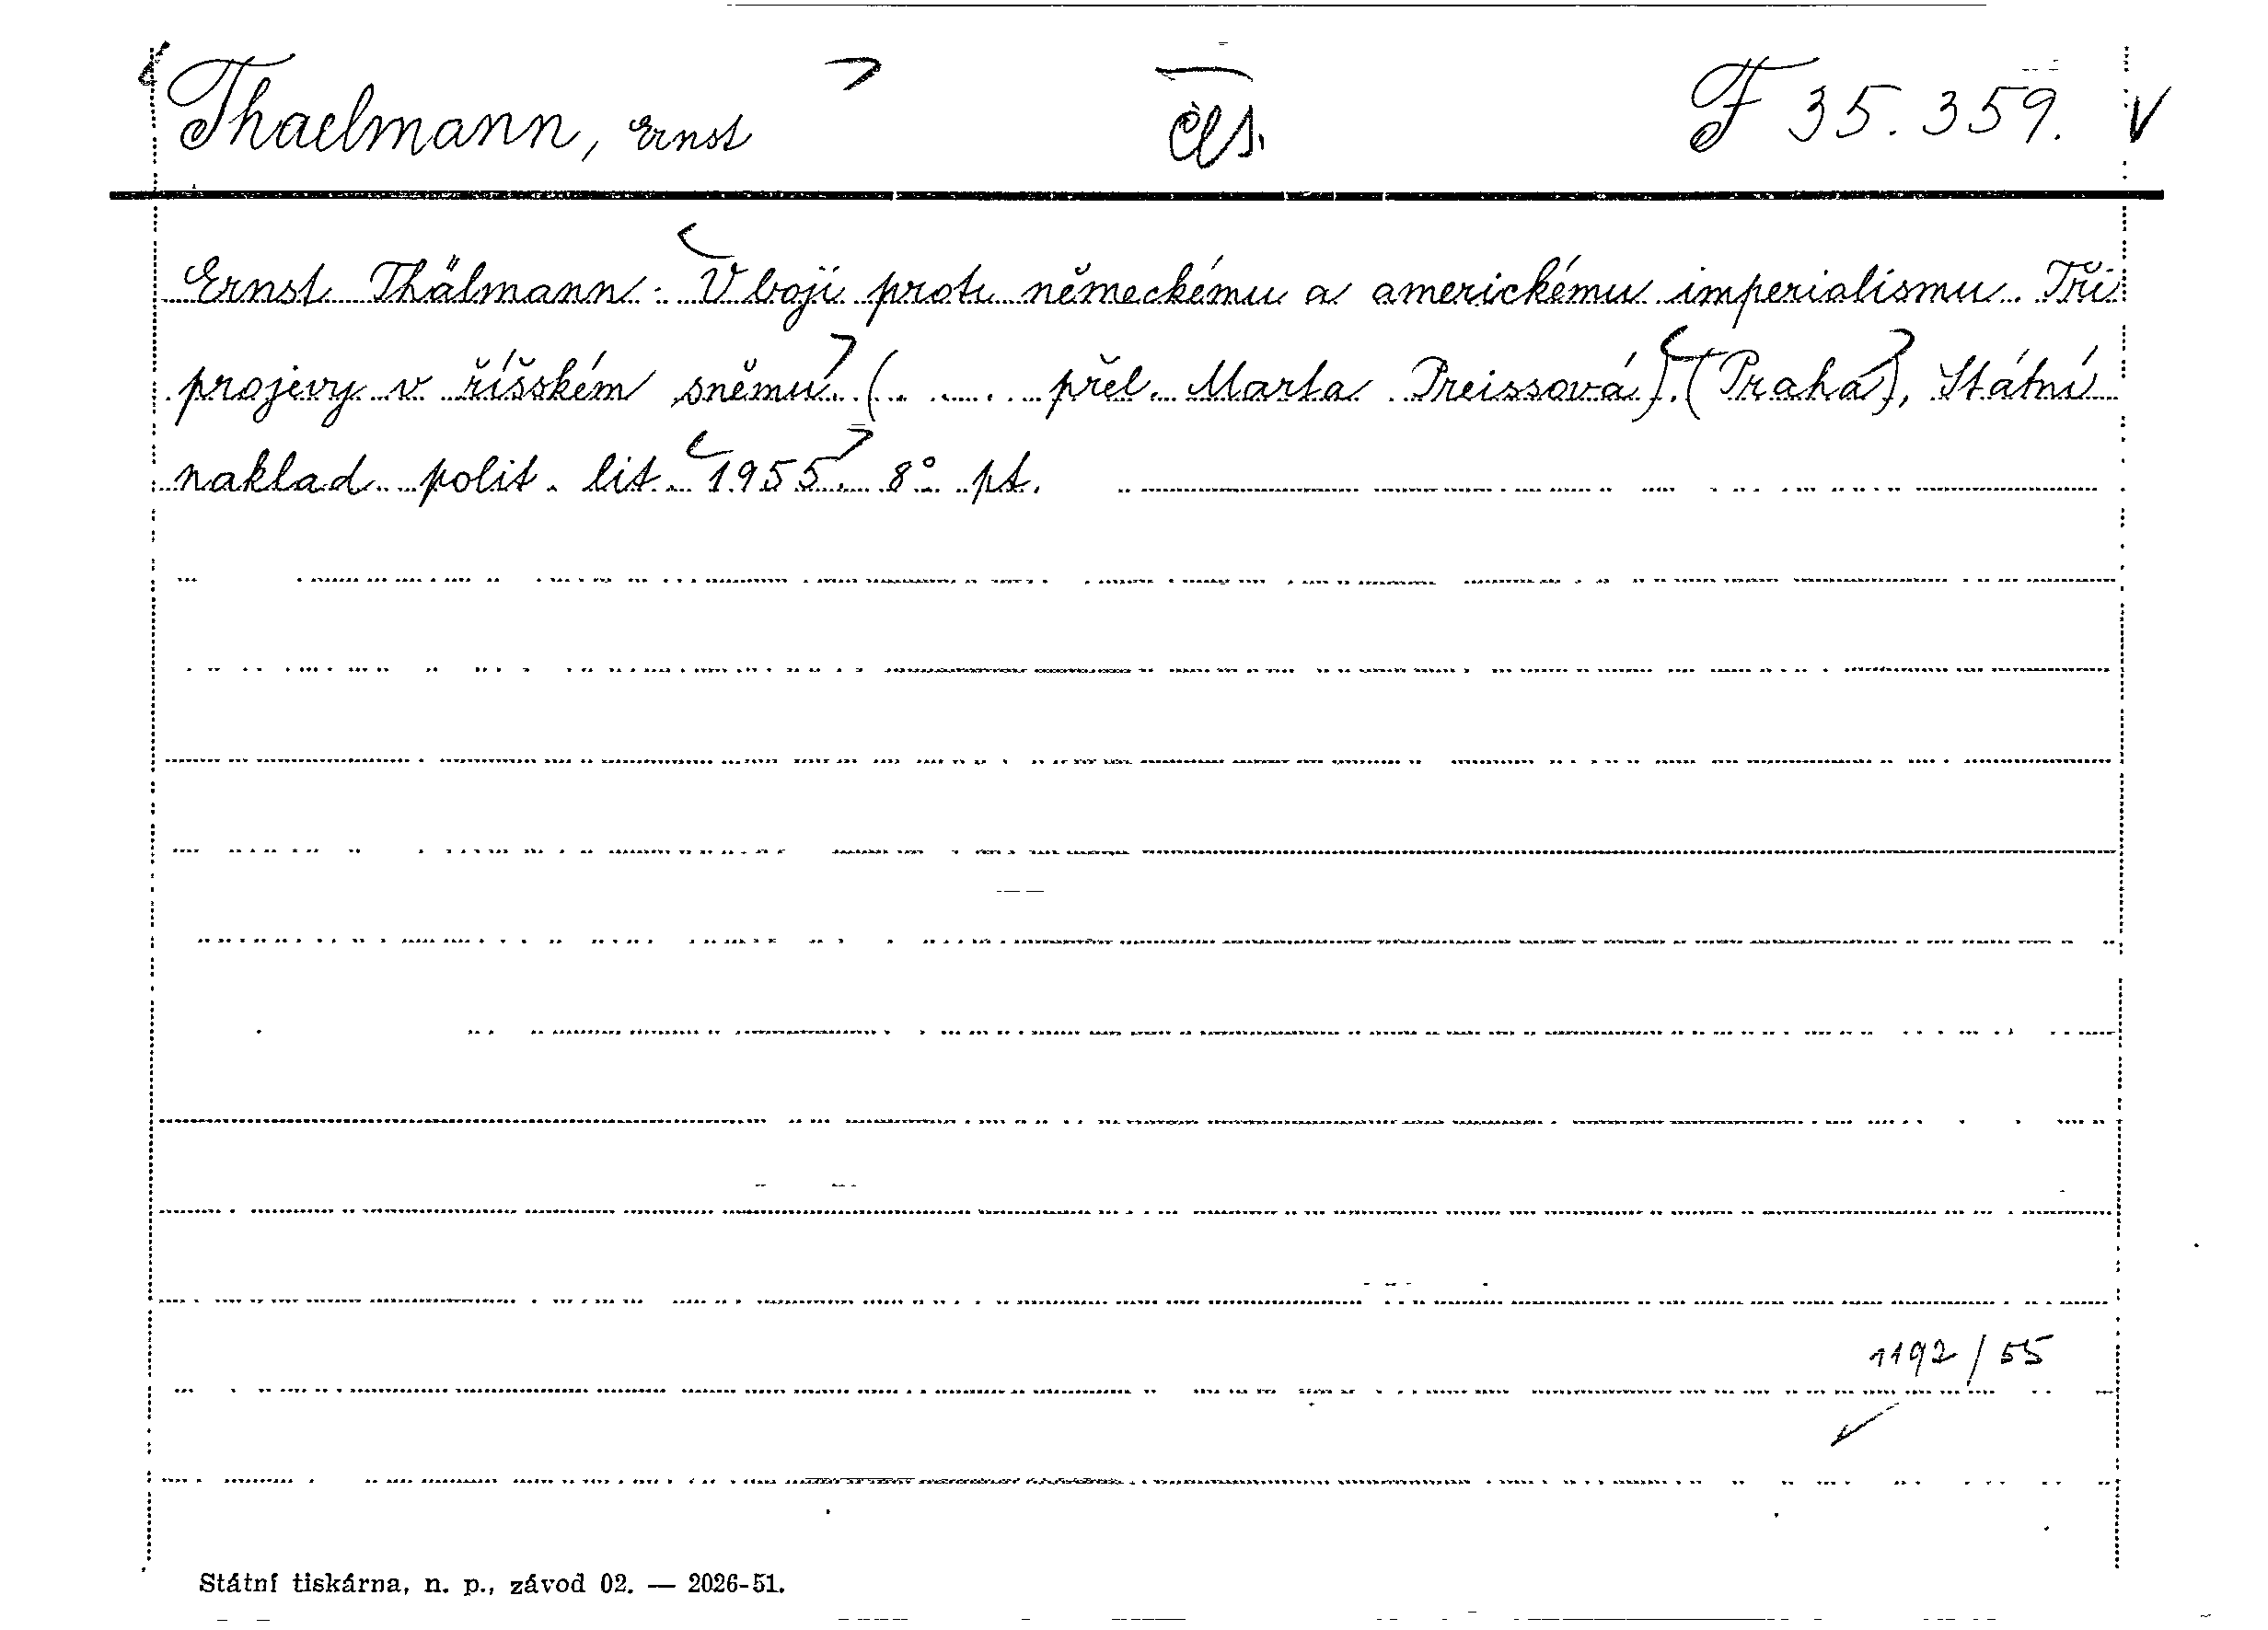 Thaelmann, Ernst čls. F 35.359. V
Ernst Thälmann: V boji proti německému a americkému imperialismu. Tři
projevy v říšském sněmu. (. .... přel. Marta Preissová). (Praha), Státní
naklad. polit. lit. 1955. 8° pt.
1192/55
Státní tiskárna, n. p., závod 02. — 2026-51.